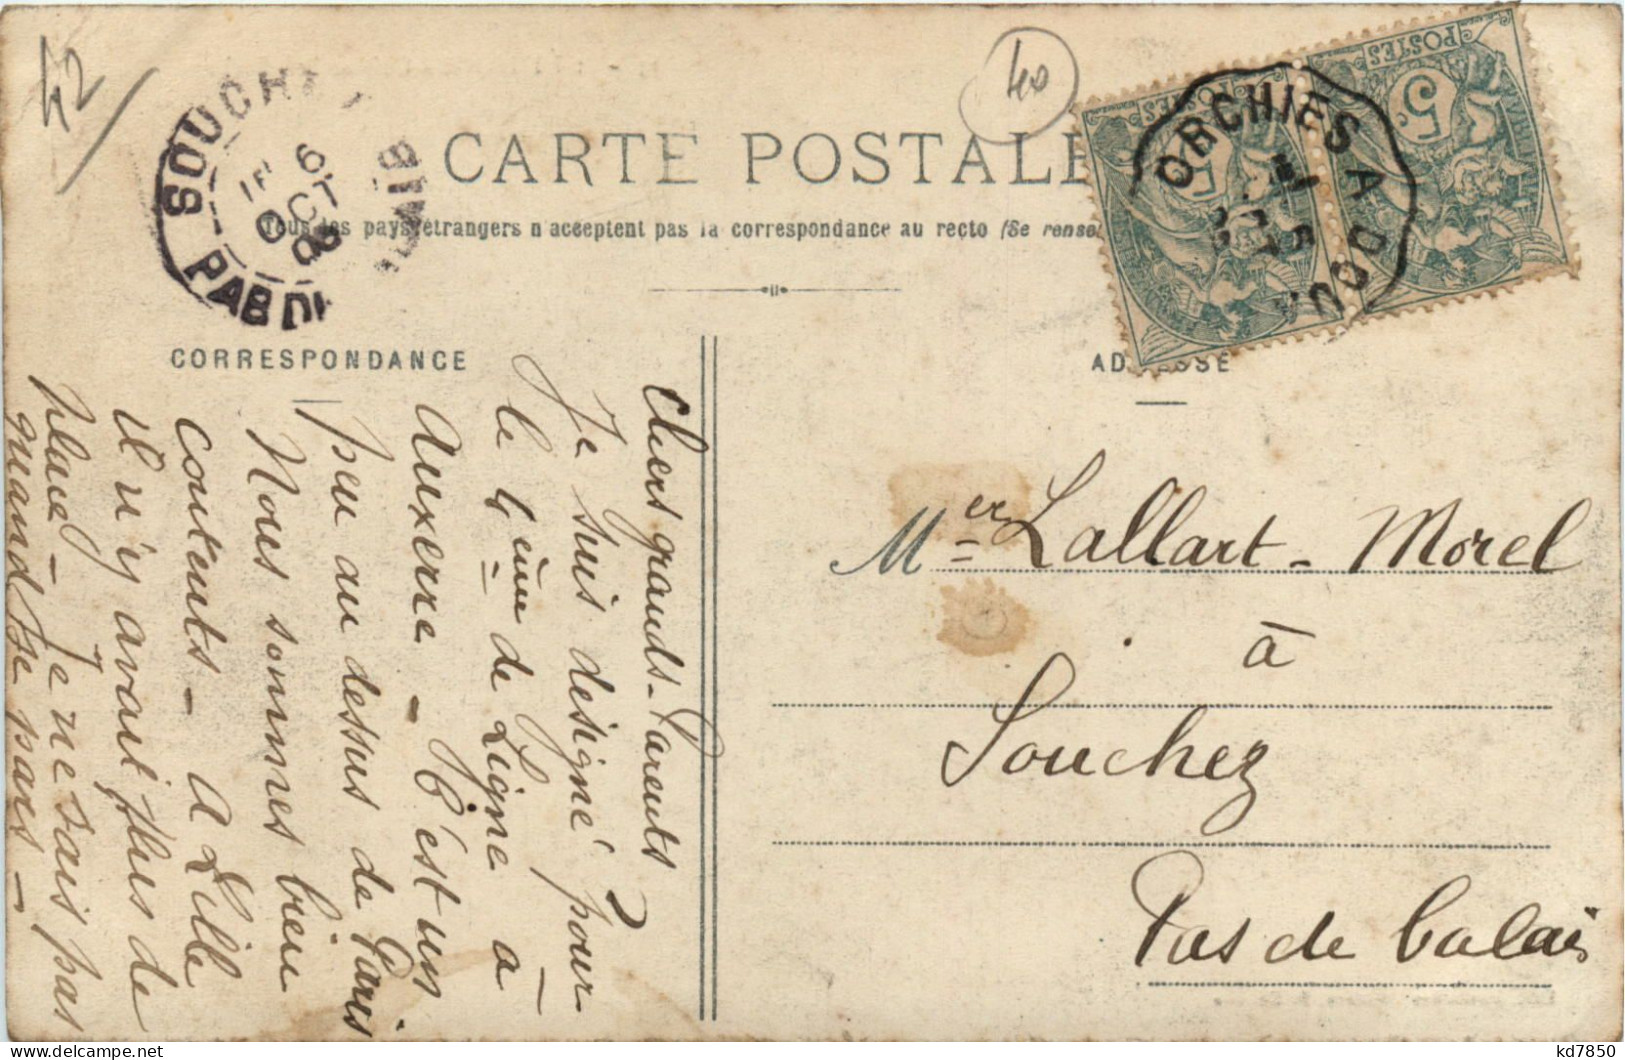 42
40
CARTE POSTALE
Tous les pays étrangers n'acceptent pas la correspondance au recto (Se rense
SOUCH
6
OCT
08
PAS DE CALAIS
ORCHIES A DOUAI
5
OCT
POSTES
5
POSTES
5
CORRESPONDANCE
ADRESSE
Chers grands-Parents
Je suis désigné pour
le 4ème de Ligne à
Auxerre - C'est un
peu au dessus de Paris
Nous sommes bien
contents - A Lille
il n'y avait plus de
place - Je ne sais pas
quand je pars -
Mer Lallart - Morel
à
Souchez
Pas de Calais
kd7850